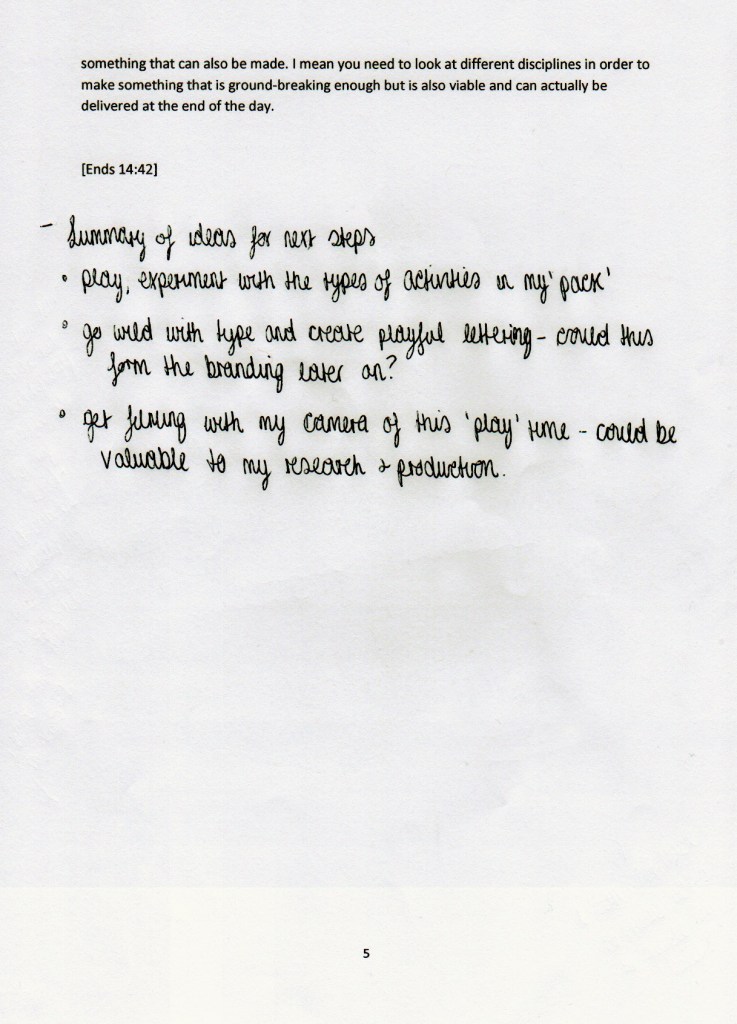 something that can also be made. I mean you need to look at different disciplines in order to
make something that is ground-breaking enough but is also viable and can actually be
delivered at the end of the day.
[Ends 14:42]
- Summary of ideas for next steps
• play, experiment with the types of activities in my 'pack'
• go wild with type and create playful lettering - could this
form the branding later on?
• get filming with my camera of this 'play' time - could be
valuable to my research & production.
5